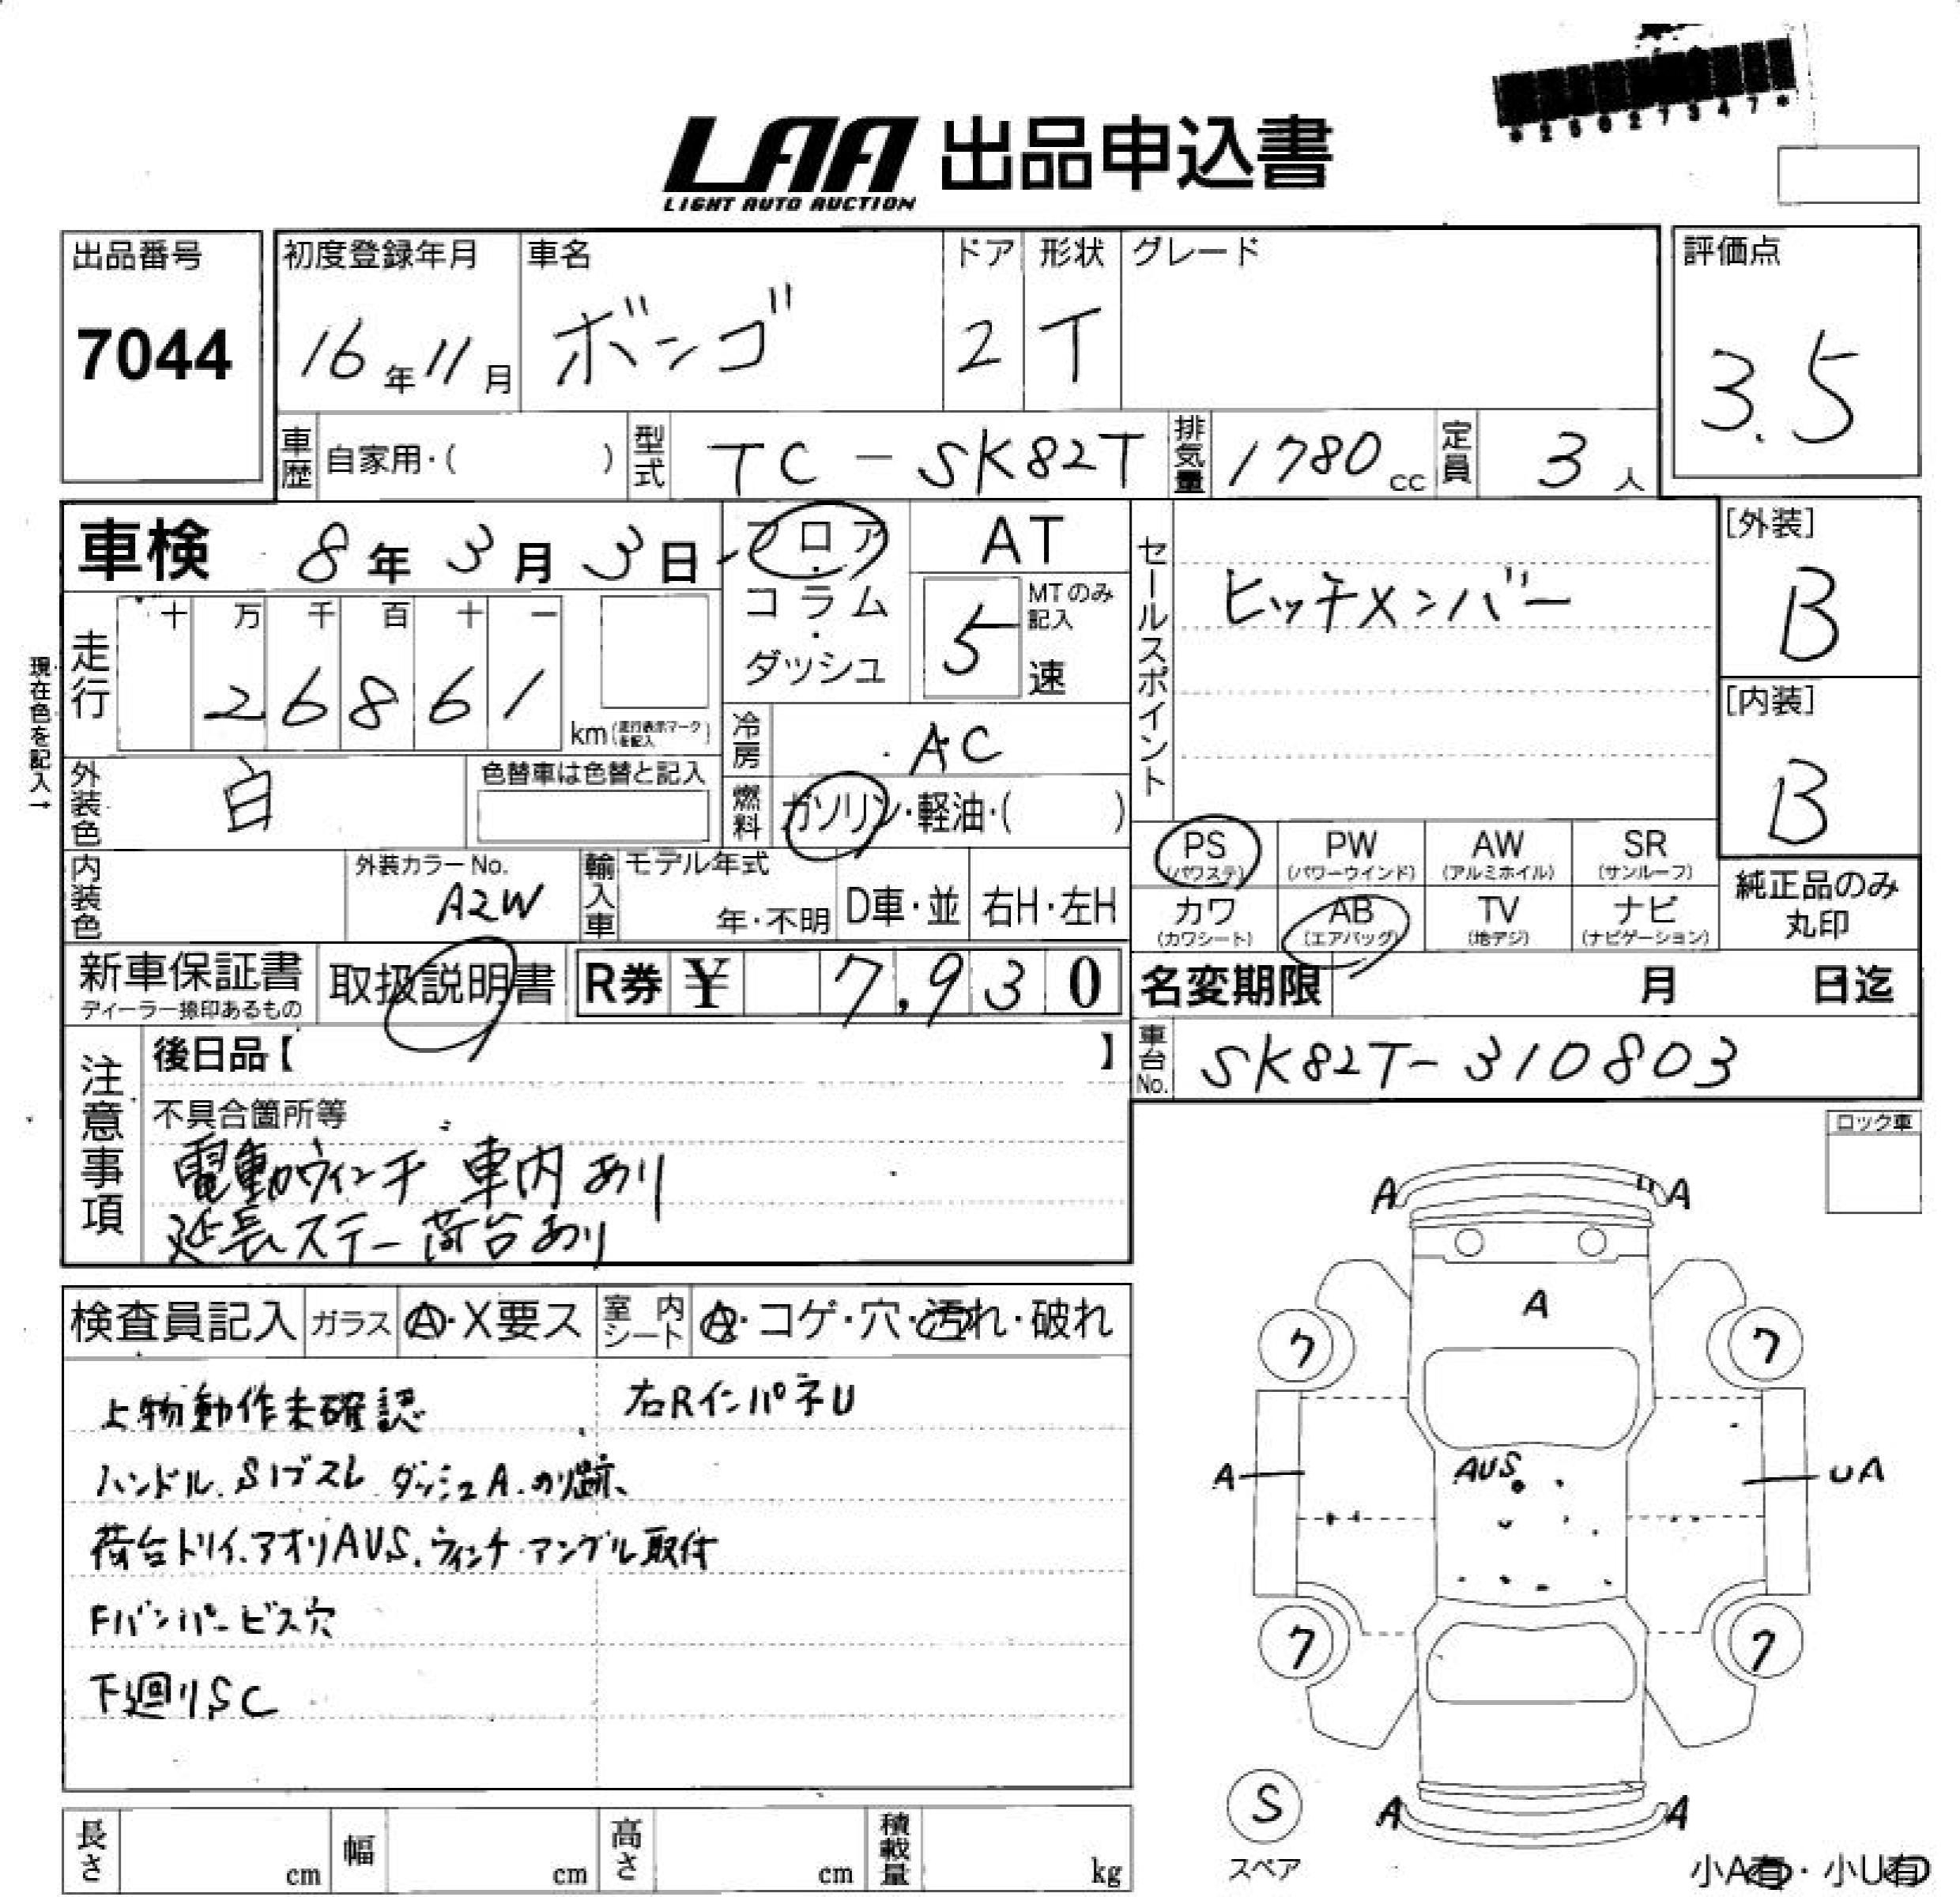 *25027347*
LAA 出品申込書
LIGHT AUTO AUCTION
出品番号
7044
初度登録年月
16年11月
車名
ボンゴ
ドア
2
形状
T
グレード
評価点
3.5
車歴 自家用・( )
型式 TC-SK82T
排気量 1780cc
定員 3人
車検 8年3月3日
フロア・コラム・ダッシュ
AT
5速
MTのみ記入
セールスポイント
ヒッチメンバー
[外装]
B
[内装]
B
現在色を記入→
走行
十 万 千 百 十 一
2 6 8 6 1
km(走行表示マークを記入)
冷房 AC
燃料 ガソリン・軽油・( )
外装色 白
色替車は色替と記入
内装色
外装カラーNo.
A2W
輸入車
モデル年式
年・不明
D車・並
右H・左H
PS(パワステ)
PW(パワーウインド)
AW(アルミホイル)
SR(サンルーフ)
カワ(カワシート)
AB(エアバッグ)
TV(地デジ)
ナビ(ナビゲーション)
純正品のみ丸印
新車保証書
ディーラー捺印あるもの
取扱説明書
R券 ¥ 7,930
名変期限 月 日迄
車台No. SK82T-310803
注意事項
後日品【 】
不具合箇所等
電動ウインチ 車内あり
延長ステー荷台あり
ロック車
検査員記入
ガラス A・X要ス
室内シート A・コゲ・穴・汚れ・破れ
上物動作未確認
右RインパネU
ハンドル.S1ブスレ ダッシュA.のり跡、
荷台トリイ.アオリAUS.ウィンチ.アングル取付
Fバンパービス穴
下廻りSC
A A
A
7 7
AUS
A UA
7 7
A A
S
スペア
小A有・小U有
長さ cm
幅 cm
高さ cm
積載量 kg